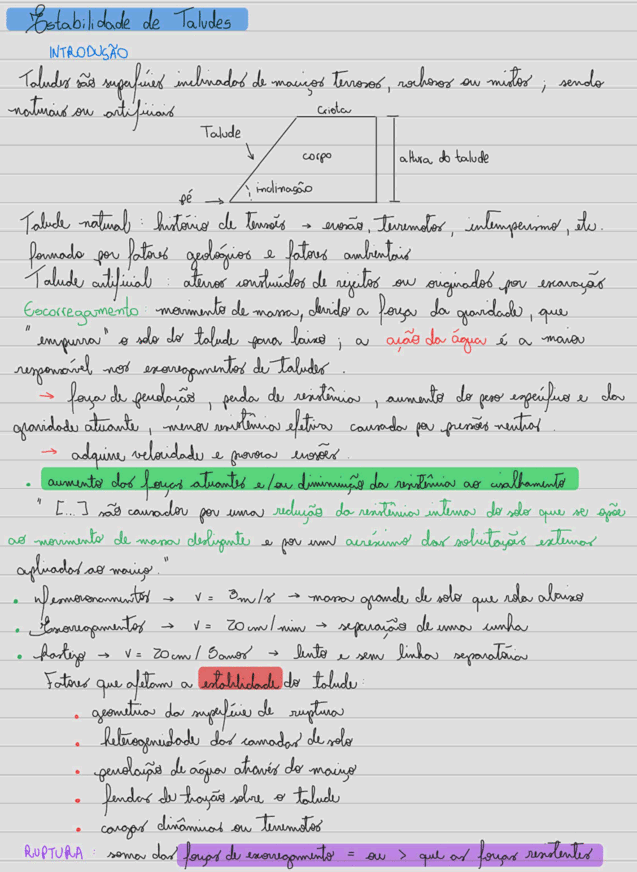 Estabilidade de Taludes
INTRODUÇÃO
Taludes são superfícies inclinadas de maciços terrosos, rochosos ou mistos; sendo
naturais ou artificiais
Crista
Talude
corpo
altura do talude
inclinação
pé
Talude natural: histórico de tensões → erosão, terremotos, intemperismo, etc.
formado por fatores geológicos e fatores ambientais
Talude artificial: aterros construídos de rejeitos ou originados por escavação
Escorregamento: movimento de massa, devido a força da gravidade, que
"empurra" o solo do talude para baixo; a ação da água é a maior
responsável nos escorregamentos de taludes.
→ força de percolação, perda de resistência, aumento do peso específico e da
gravidade atuante, menor resistência efetiva causada por pressões neutras.
→ adquire velocidade e provoca erosões.
• aumento das forças atuantes e/ou diminuição da resistência ao cisalhamento
"[...] são causados por uma redução da resistência interna do solo que se opõe
ao movimento de massa deslizante e por um acréscimo das solicitações externas
aplicadas ao maciço."
• Desmoronamentos → v = 3m/s → massa grande de solo que rola abaixo
• Escorregamentos → v = 20 cm/min → separação de uma cunha
• Rastejo → v = 20 cm/3 anos → lento e sem linha separatória
Fatores que afetam a estabilidade do talude:
• geometria da superfície de ruptura
• heterogenidade das camadas de solo
• percolação de água através do maciço
• fendas de tração sobre o talude
• cargas dinâmicas ou terremotos
RUPTURA: soma das forças de escorregamento = ou > que as forças resistentes